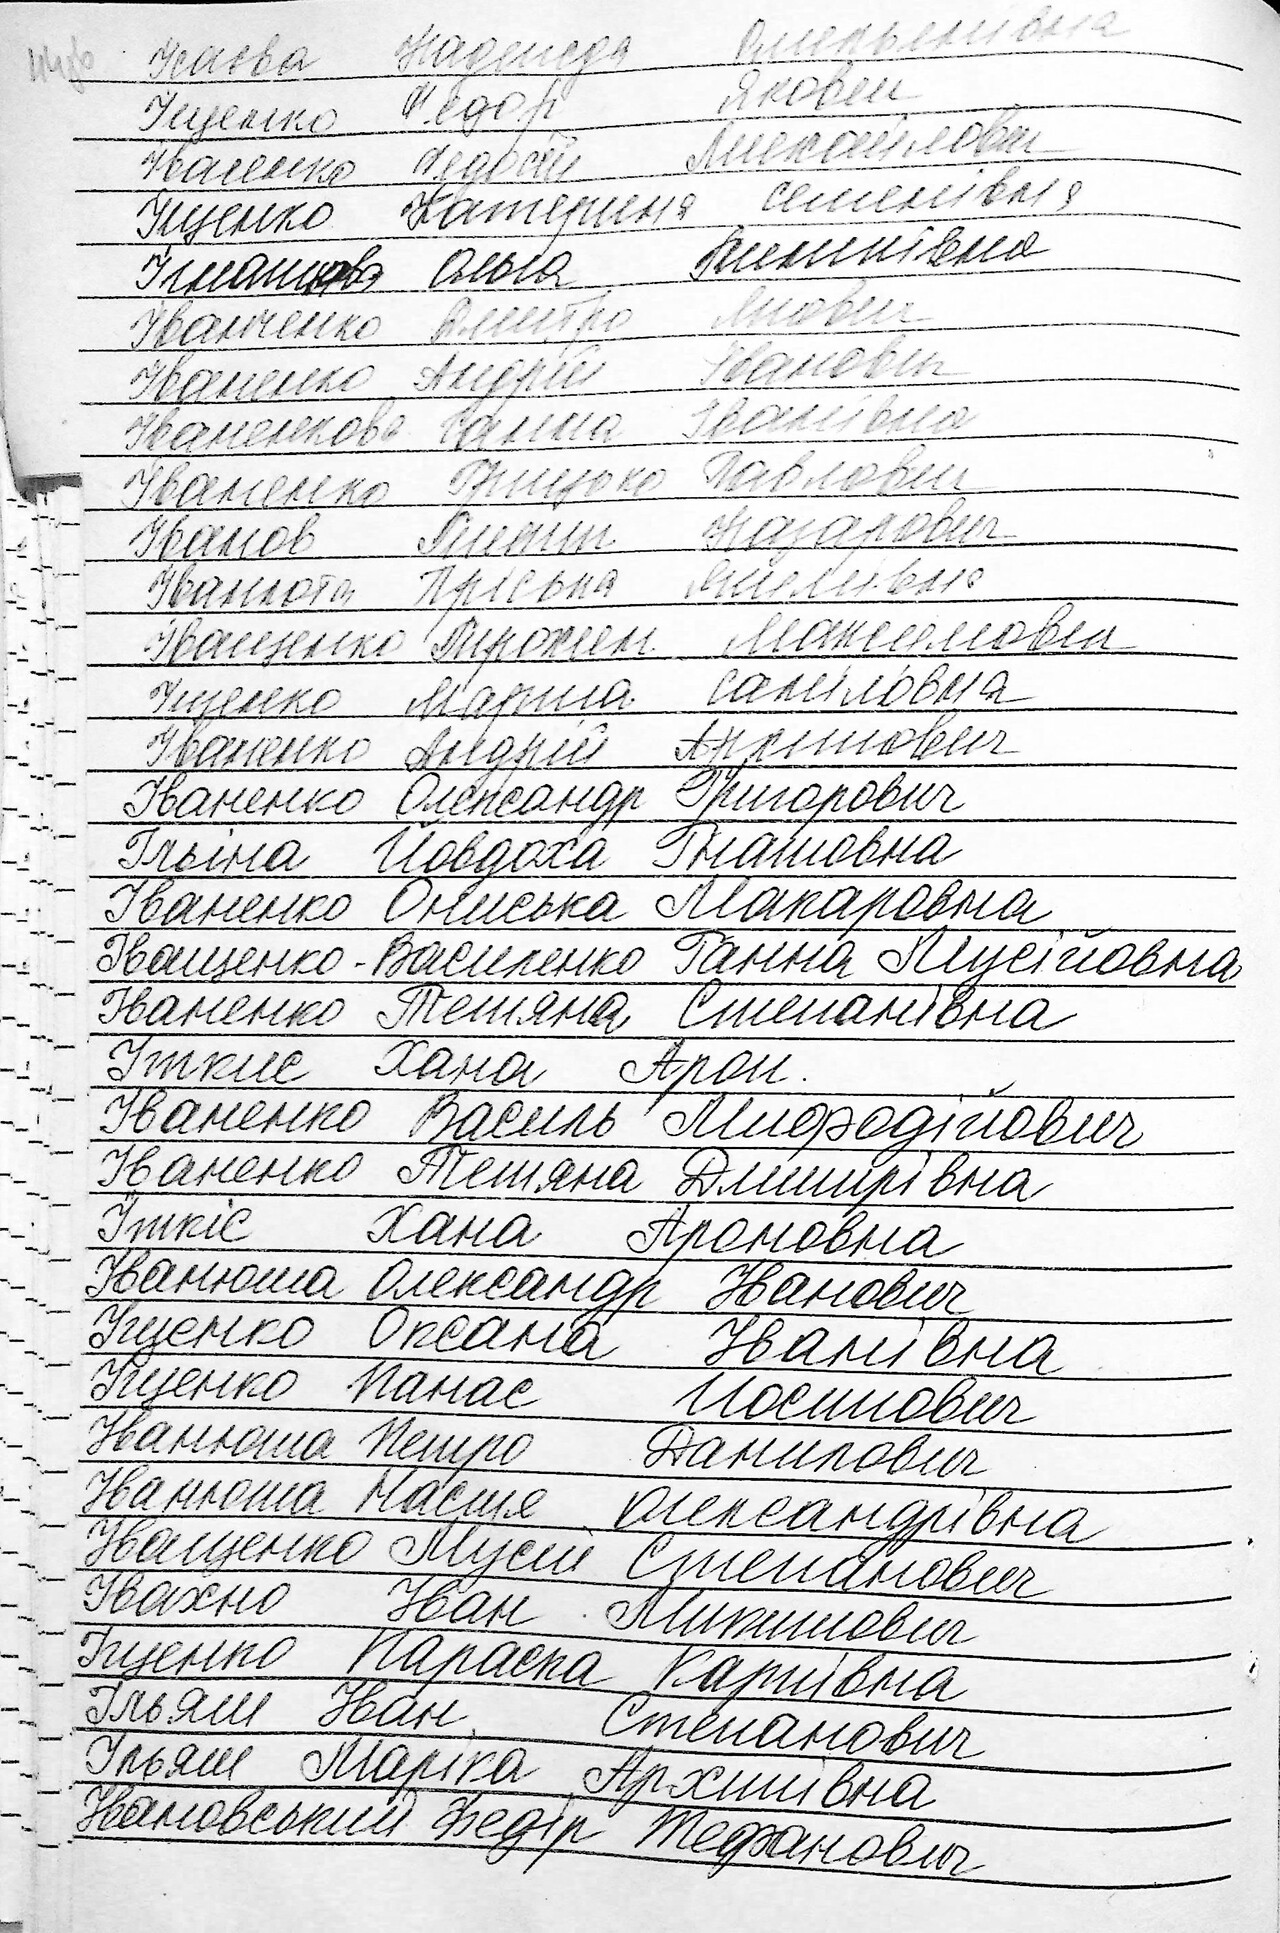 Ісаєва Надежда Омелянівна
Іщенко Федор Якович
Іваненко Федосій Михайлович
Іщенко Катерина Семенівна
Ольга Пилипівна
Іванченко Дмитро Якович
Іваненко Андрій Іванович
Іваненкова Ганна Іванівна
Іваненко Грицько Павлович
Іванов Пилип Назарович
Іванюта Пріська
Іващенко Трохим Максимович
Іщенко Мариа Саміловна
Іваненко Андрій Архипович
Іваненко Олександр Григорович
Ільіна Йовдоха Гнатовна
Іваненко Ониська Макаровна
Іващенко-Василенко Ганна Мусійовна
Іваненко Тетяна Степанівна
Іткис Хана Арон.
Іваненко Василь Мифодійович
Іваненко Тетяна Дмитрівна
Іткіс Хана Ароновна
Іванюша Олександр Іванович
Іщенко Оксана Іванівна
Іщенко Панас Йосипович
Іванюша Петро Данилович
Іванюша Настя Олександрівна
Іващенко Мусій Степанович
Івахно Іван Микитович
Іщенко Параска Карпівна
Ільяш Іван Степанович
Ільяш Маріка Архипівна
Івановський Федір Тефанович